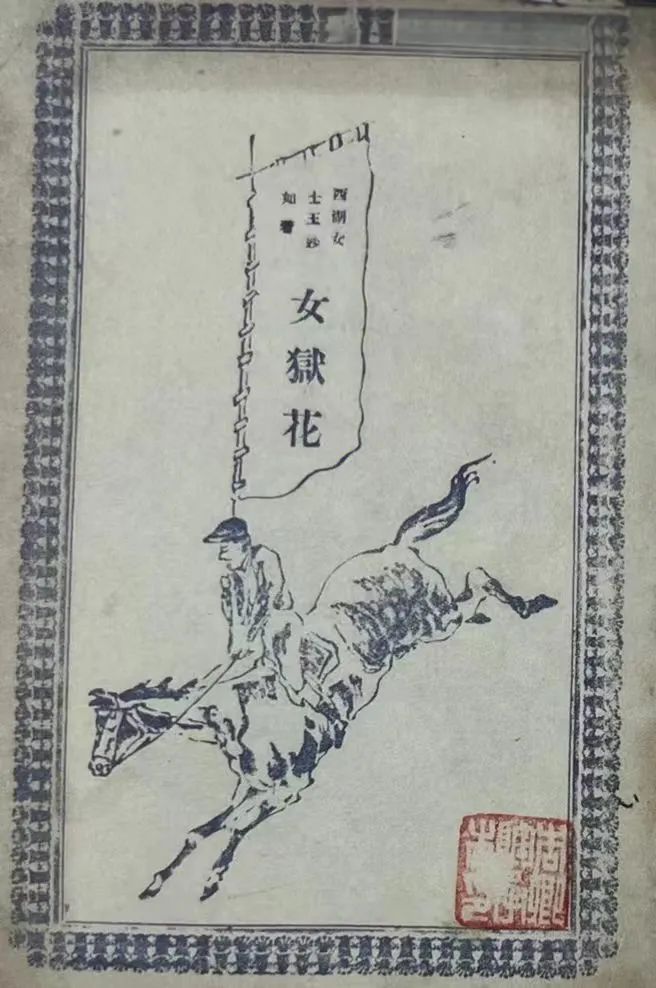 西湖女
士王妙
如著
女獄花